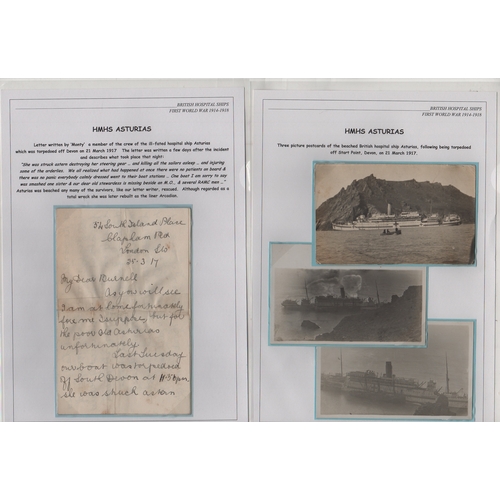 BRITISH HOSPITAL SHIPS
FIRST WORLD WAR 1914-1918
HMHS ASTURIAS
Letter written by 'Monty' a member of the crew of the ill-fated hospital ship Asturias
which was torpedoed off Devon on 21 March 1917 The letter was written a few days after the incident
and describes what took place that night:
"She was struck astern destroying her steering gear ... and killing all the sailors asleep ... and injuring
some of the orderlies. We all realized what had happened at once there were no patients on board &
there was no panic everybody calmly dressed went to their boat stations .. One boat I am sorry to say
was smashed one sister & our dear old stewardess is missing beside an M.O., & several RAMC men .."
Asturias was beached any many of the survivors, like our letter writer, rescued. Although regarded as a
total wreck she was later rebuilt as the liner Arcadian.
54 South Island Place
Clapham Rd
London SW
25-3 17
My Dear Burnell
As you will see
I am at home fortunately
for me I suppose but for
the poor old Asturias
unfortunately.
Last Tuesday
our boat was torpedoed
off South Devon at 11-50 pm
she was struck astern
BRITISH HOSPITAL SHIPS
FIRST WORLD WAR 1914-1918
HMHS ASTURIAS
Three picture postcards of the beached British hospital ship Asturias, following being torpedoed
off Start Point, Devon, on 21 March 1917.